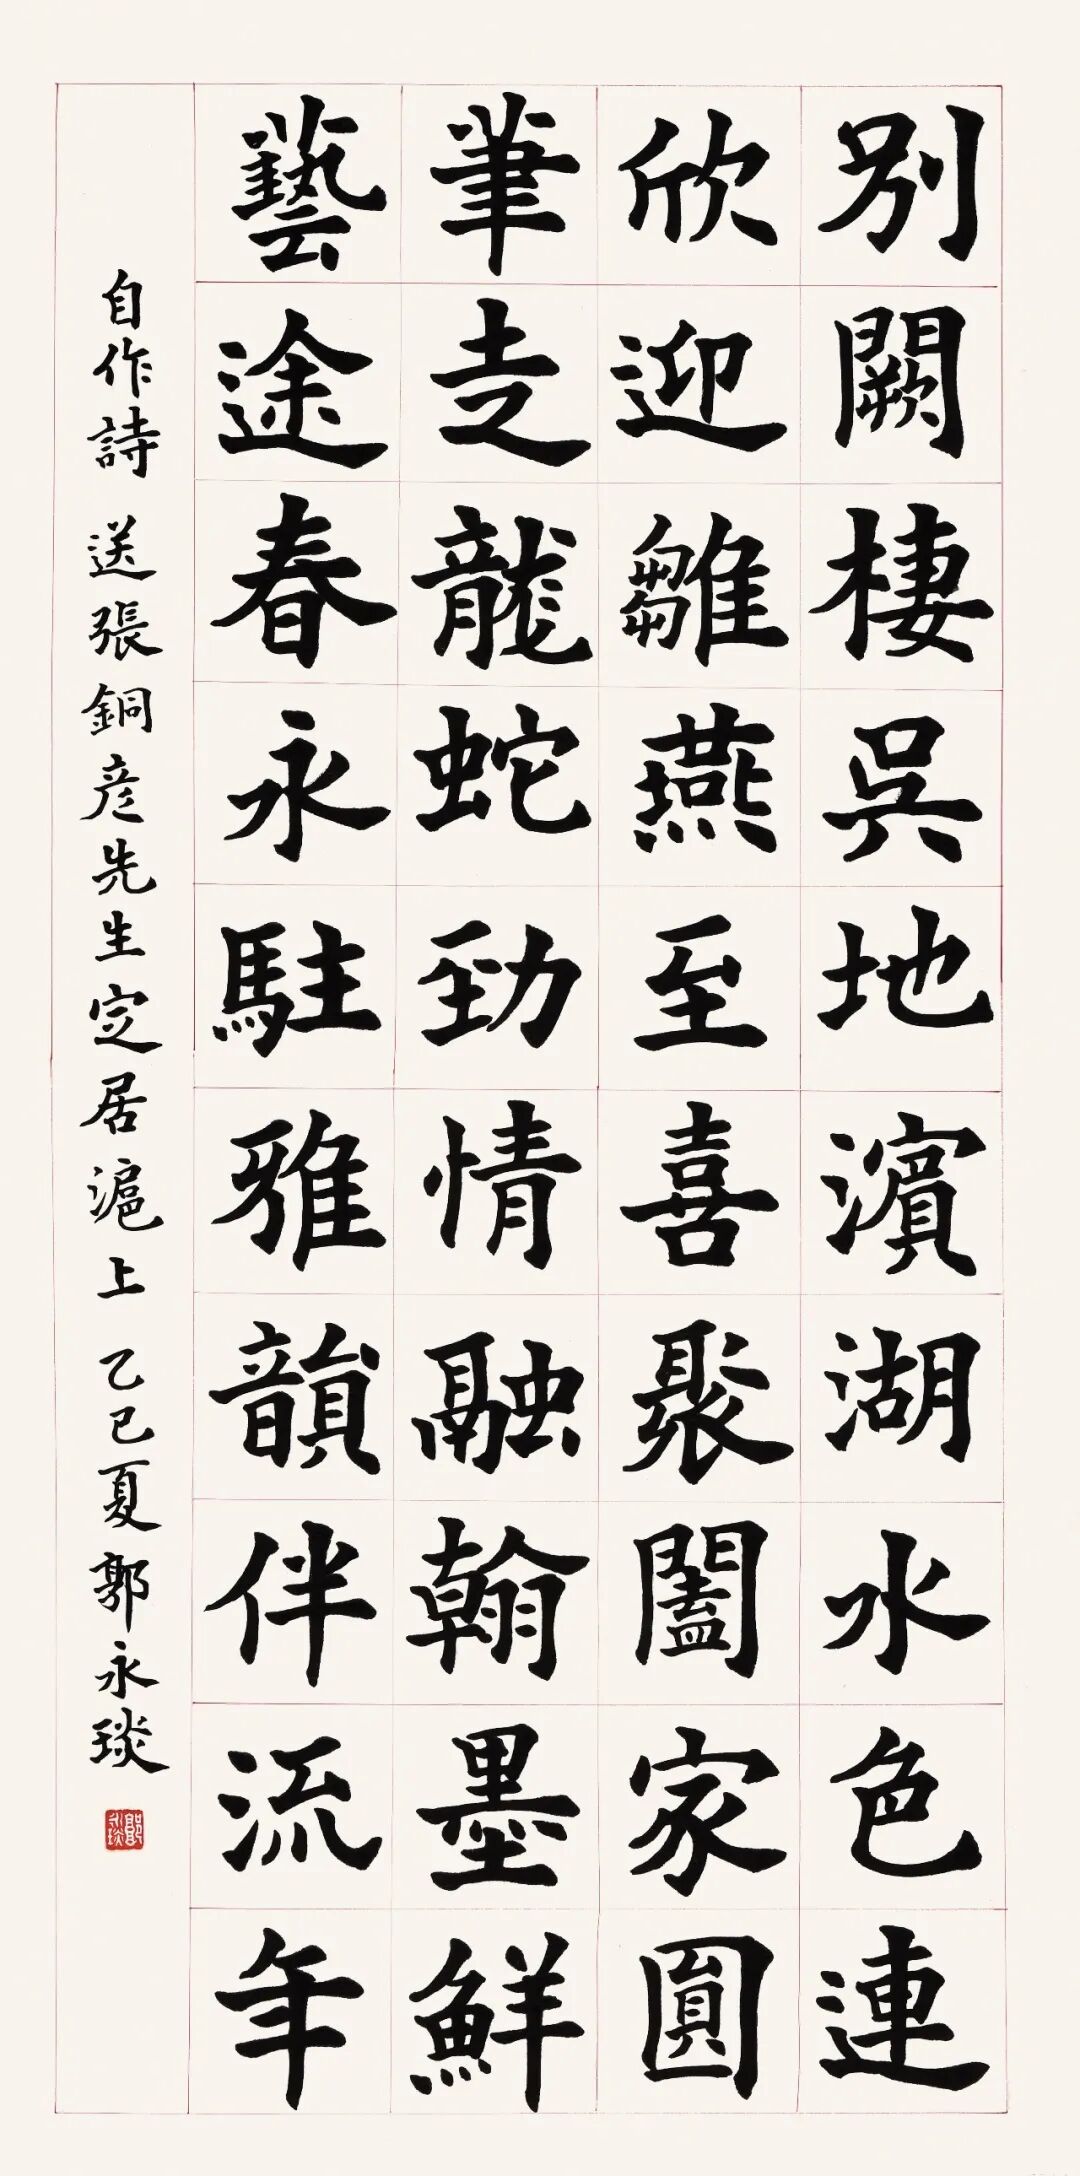 別闕棲吳地濱湖水色連
欣迎雛燕至喜聚闔家圓
筆走龍蛇勁情融翰墨鮮
藝途春永駐雅韻伴流年
自作詩 送張銅彥先生定居滬上 乙巳夏 郭永琰
郭永琰